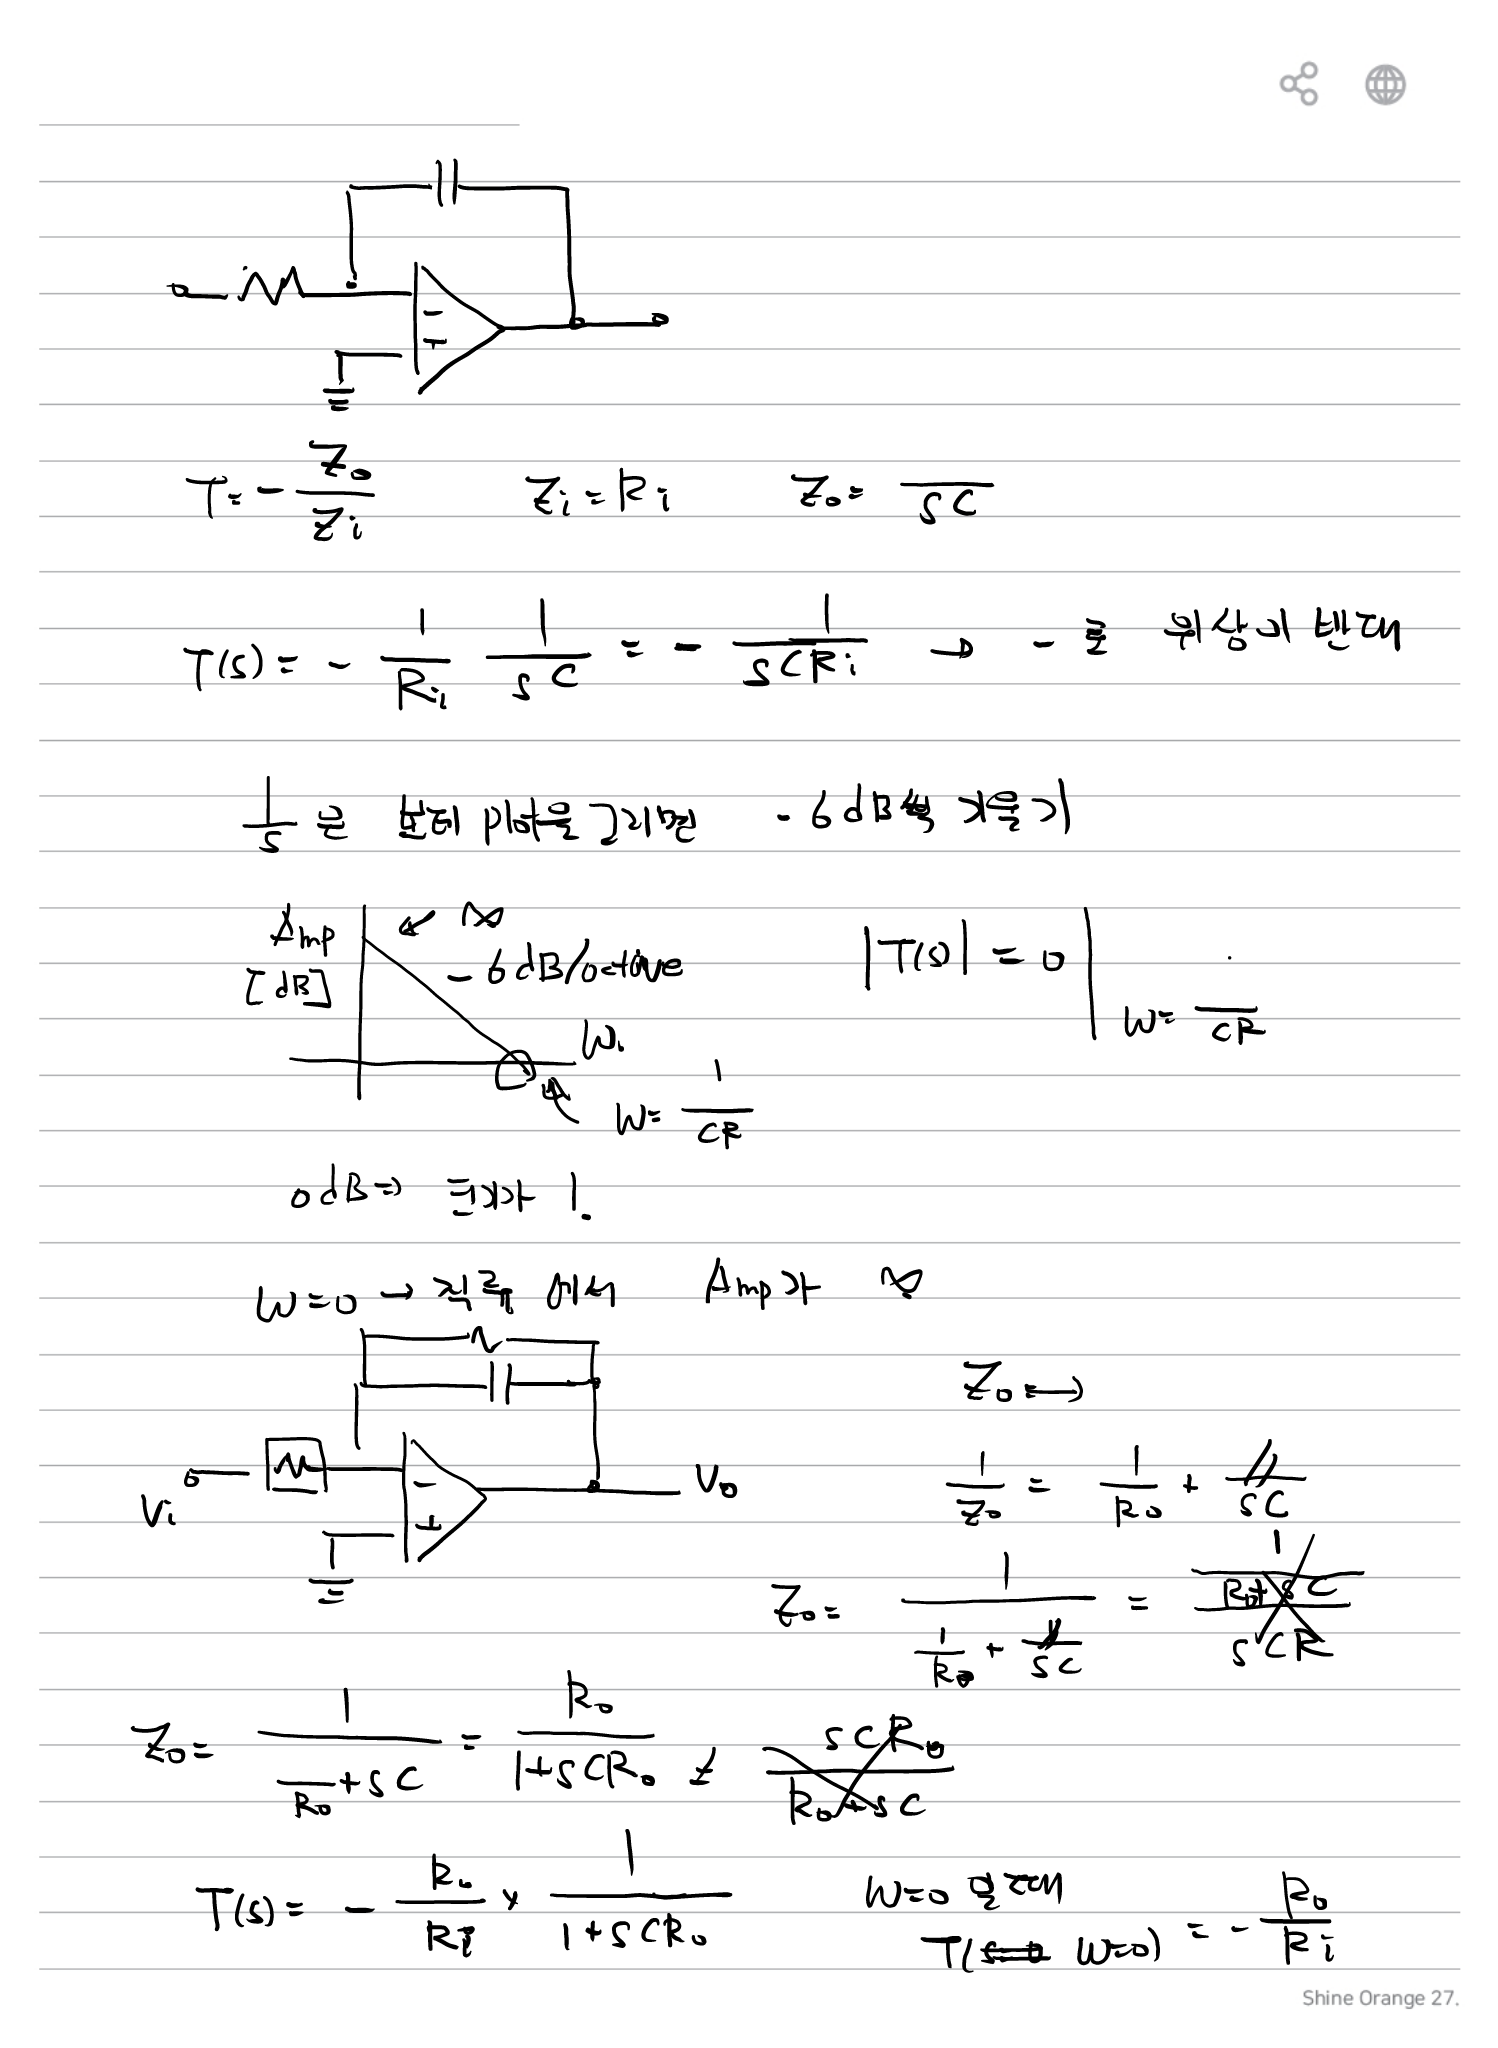 - +
T = - Zo/Zi    Zi = Ri    Zo = /sC
T(s) = - 1/Ri 1/sC = - 1/sCRi → - 로 위상이 반대
1/s 은 보데 미야을 그리면 -6dB씩 기울기
Amp ↙ ∞
[dB] -6dB/octave    |T(s)| = 0 | W= /CR
W.
W= 1/CR
0dB ⇒ 크기가 1.
W=0 → 직류 에서 Amp가 ∞
Zo →
Vi - + Vo    1/Zo = 1/Ro + /sC
Zo = 1/(1/Ro + /sC) = 1/((Ro+sC)/sCR)
Zo = 1/( /Ro + sC) = Ro/(1+sCRo) ≠ sCRo/(Ro+sC)
T(s) = - Ro/Ri × 1/(1+sCRo)    W=0 일 때
T(s=0 W=0) = - Ro/Ri
Shine Orange 27.